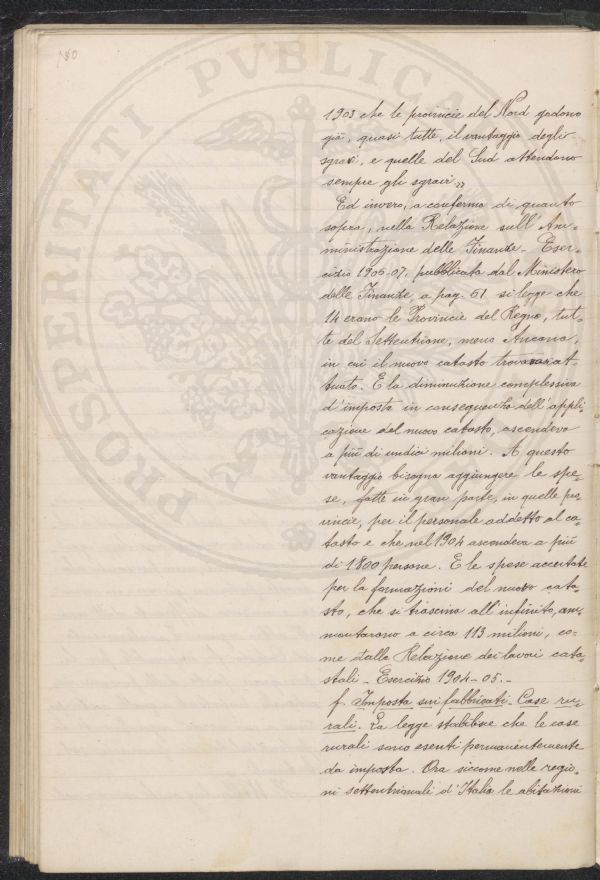 180
PROSPERITATI PVBLICAE
1903 che le provincie del Nord godono
già, quasi tutte, il vantaggio degli
sgravi, e quelle del Sud attendono
sempre gli sgravi"
Ed invero, a conferma di quanto
sopra, nella Relazione sull'Am-
ministrazione delle Finanze - Eser-
cizio 1906-07, pubblicata dal Ministero
delle Finanze, a pag. 61 si legge che
14 erano le Provincie del Regno, tut-
te del Settentrione, meno Ancona,
in cui il nuovo catasto trovavasi at-
tuato. E la diminuzione complessiva
d'imposta in conseguenza dell'appli-
cazione del nuovo catasto, ascendeva
a più di undici milioni. A questo
vantaggio bisogna aggiungere le spe-
se, fatte in gran parte, in quelle pro
vincie, per il personale addetto al ca-
tasto e che nel 1904 ascendeva a più
di 1800 persone. E le spese accertate
per la formazioni del nuovo cata-
sto, che si trascina all'infinito, am-
montarono a circa 113 milioni, co-
me dalla Relazione dei lavori cata-
stali - Esercizio 1904-05.-
f. Imposta sui fabbricati - Case ru-
rali. La legge stabilisce che le case
rurali sono esenti permanentemente
da imposta. Ora siccome nelle regio-
ni settentrionali d'Italia le abitazioni